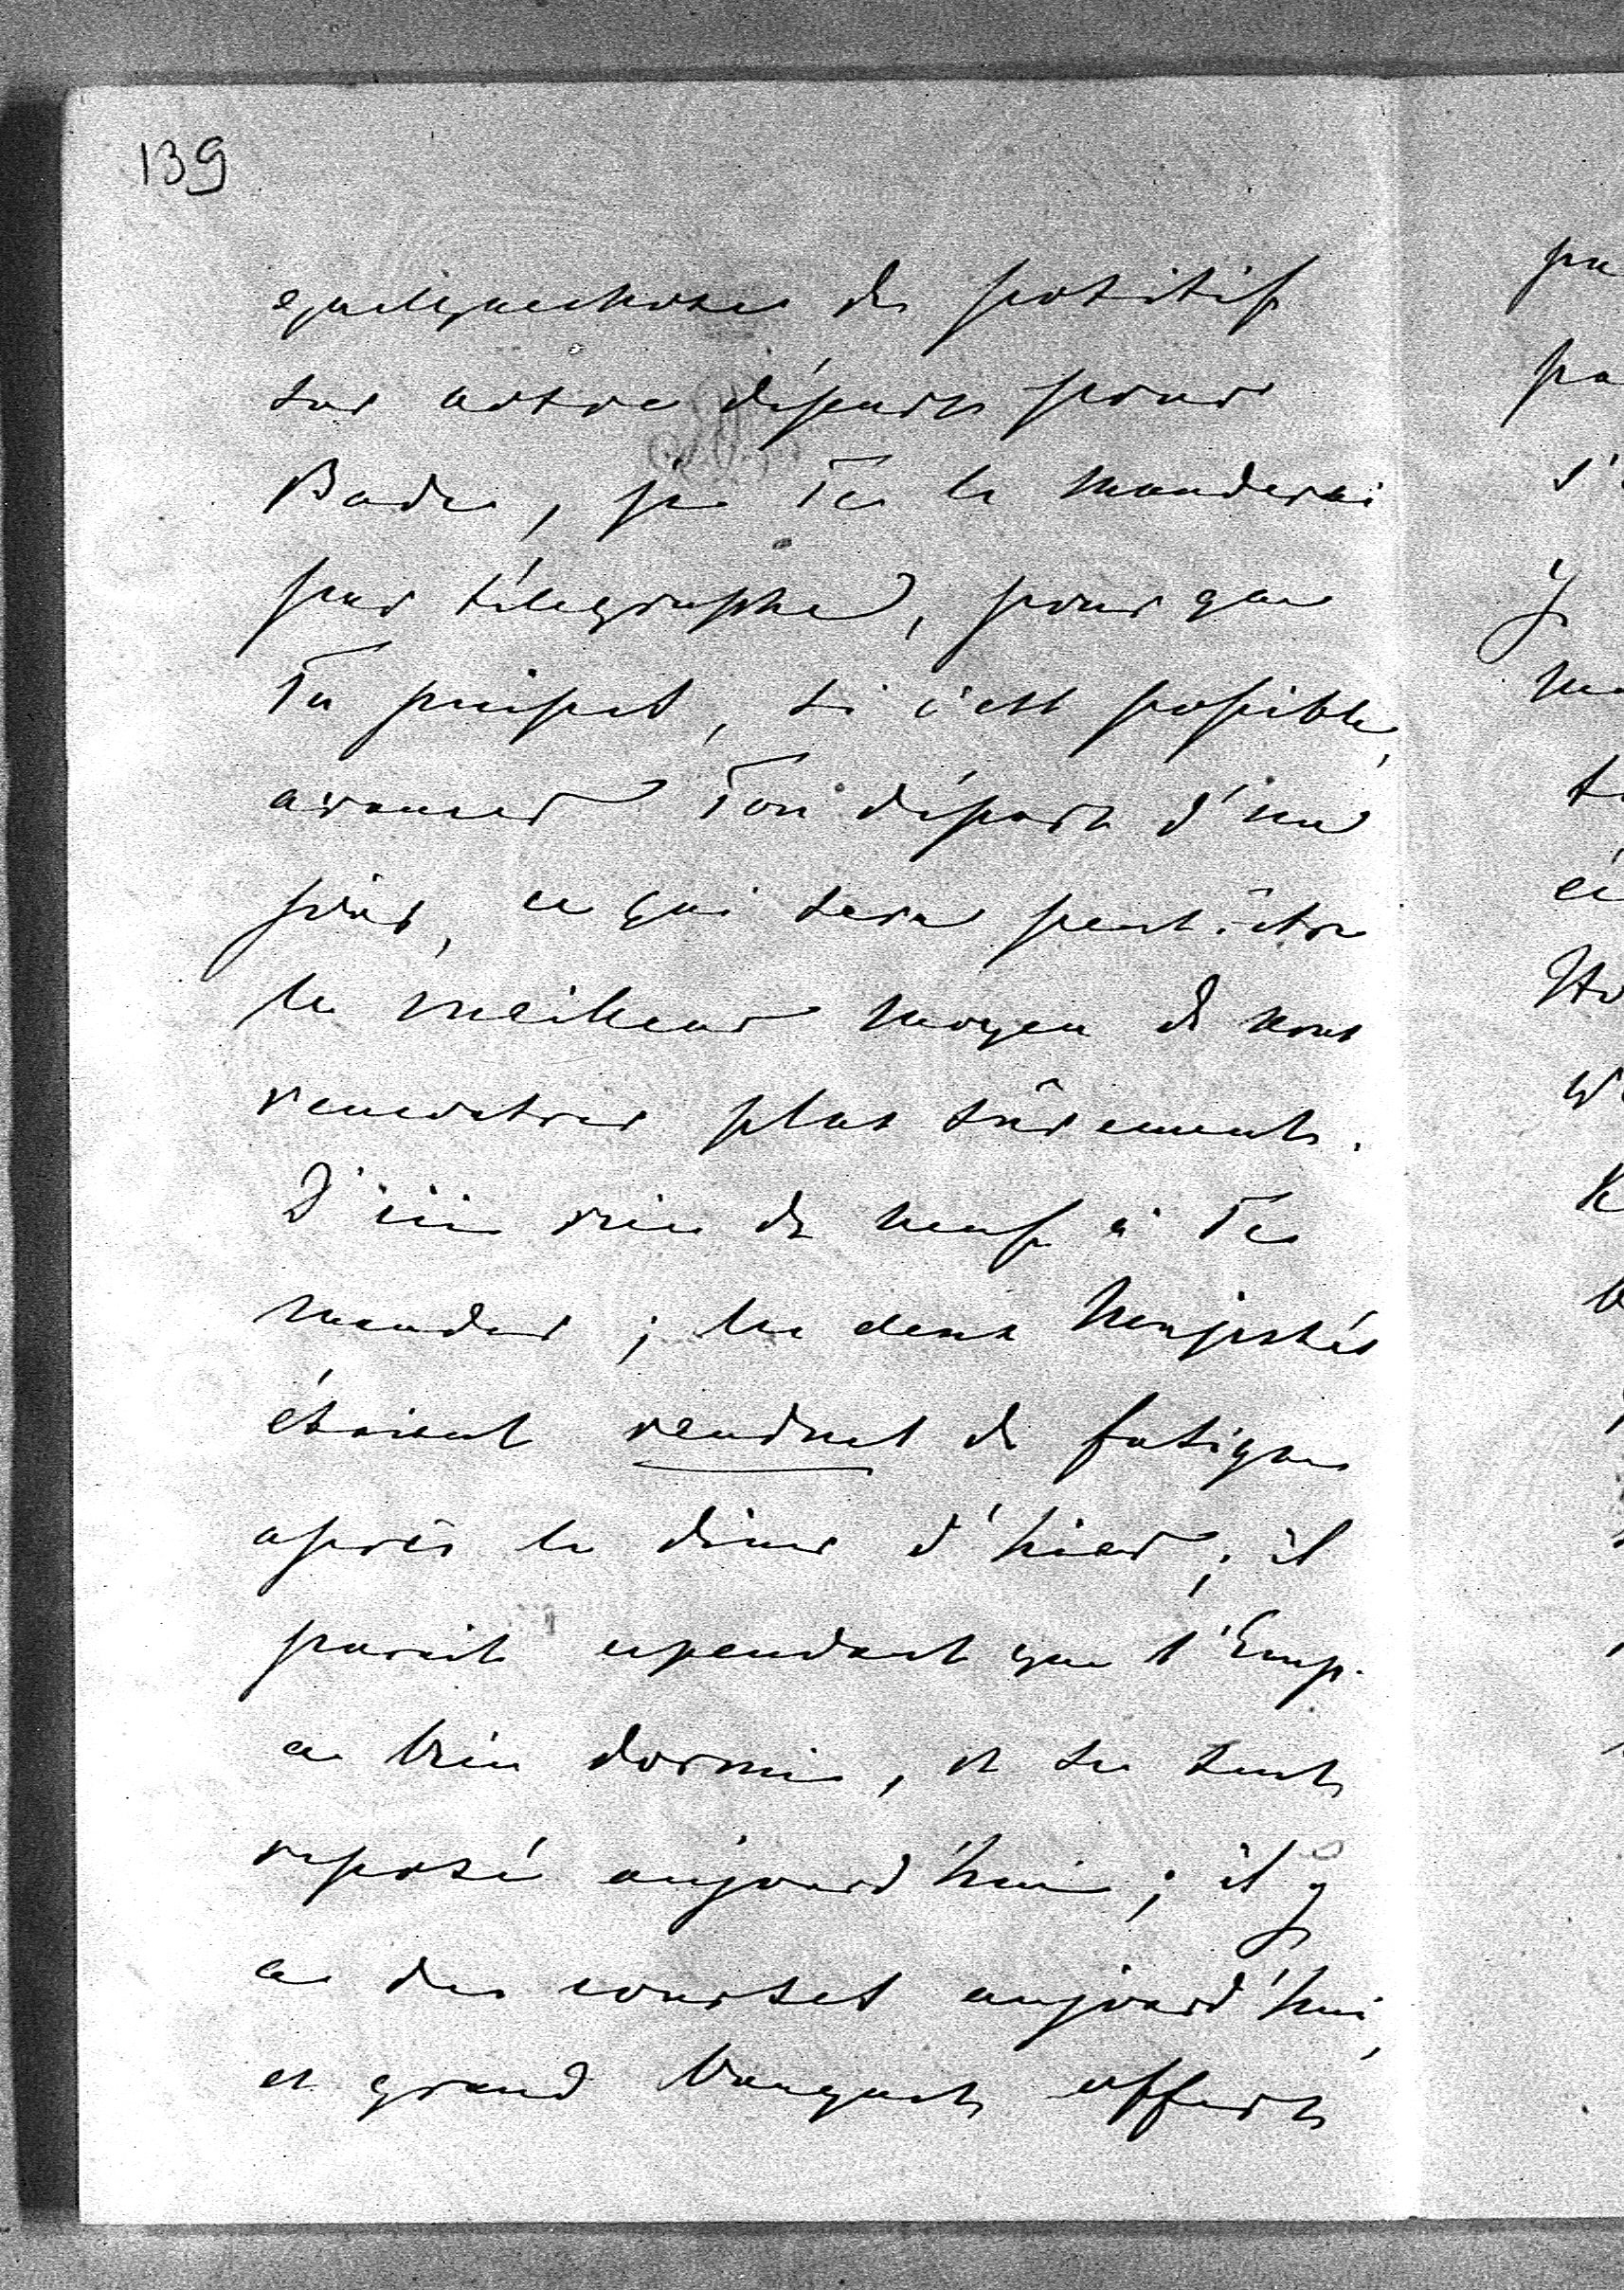 139
quelquechose de positif
sur notre départ pour
Bade, je Te le manderai
par télegraphe, pour que
Tu puisses, si c'est possible,
avancer Ton départ d'un
jour, ce qui sera peut-être
le meilleur moyen de nous
rencontrer plus sûrement.
D'ici rien de neuf à Te
mander ; les deux Majestés
étaient rendues de fatigue
après le diner d'hier ; il
parait cependant que l'Emp.
a bien dormi, et se sent
reposé aujourd'hui ; il y
a des courses aujourd'hui,
et grand banquet offert